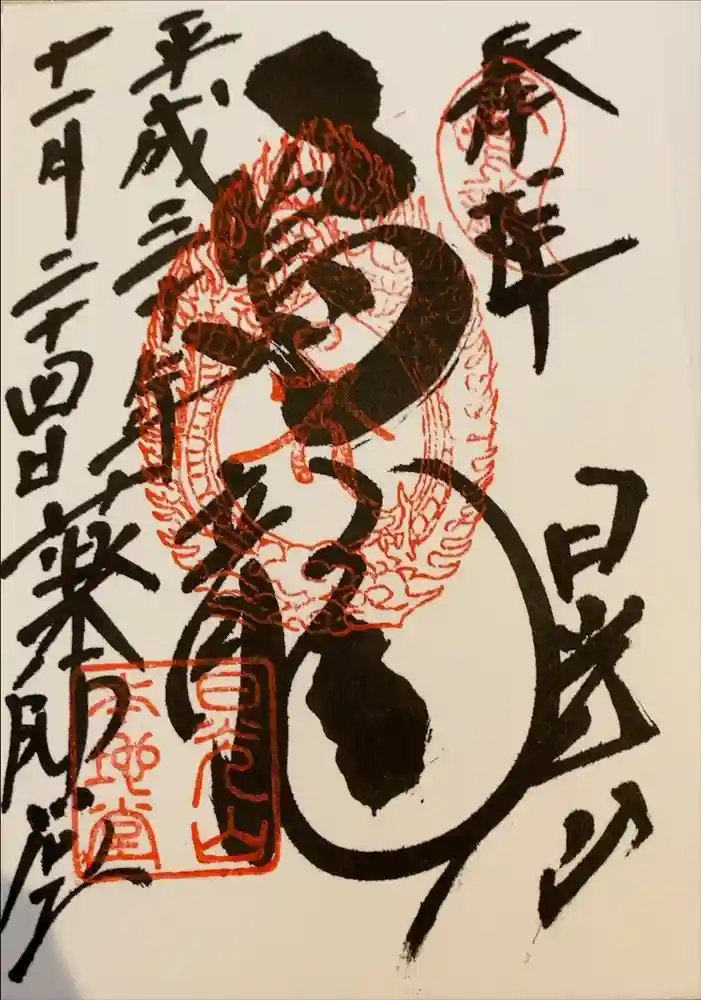 奉拝
日光山
鳴龍
平成三十年
十一月二十四日
薬師堂
日光山
本地堂